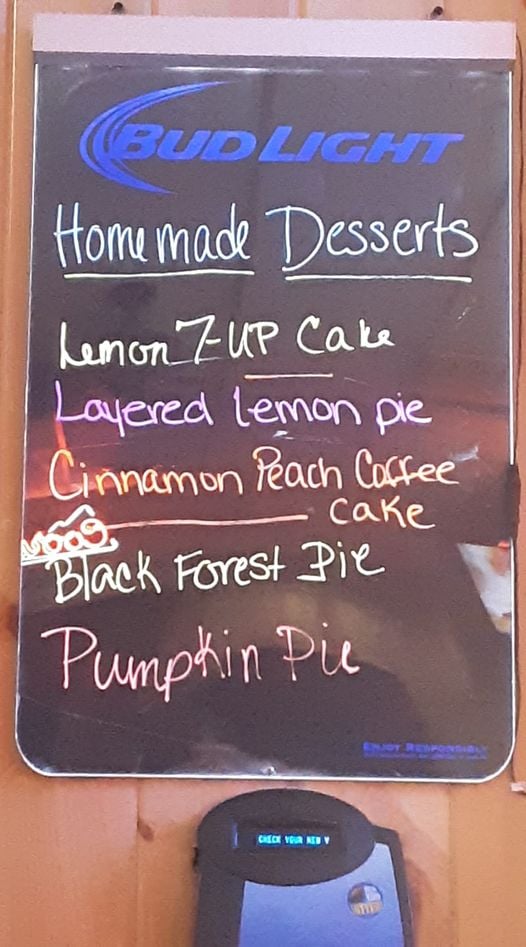 BUD LIGHT
Homemade Desserts
Lemon 7-UP Cake
Layered lemon pie
Cinnamon Peach Coffee
cake
Black Forest Pie
Pumpkin Pie
ENJOY RESPONSIBLY
CHECK YOUR NEW V